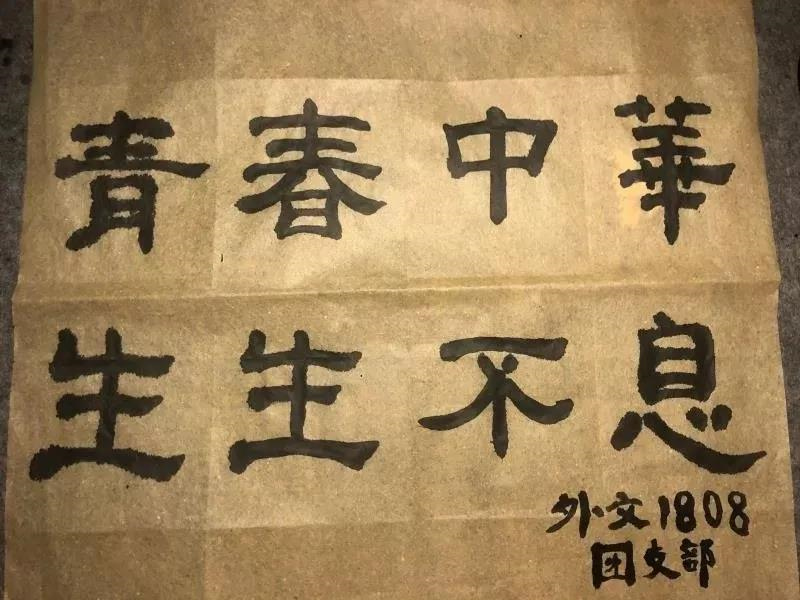 青春中華
生生不息
外文1808
团支部